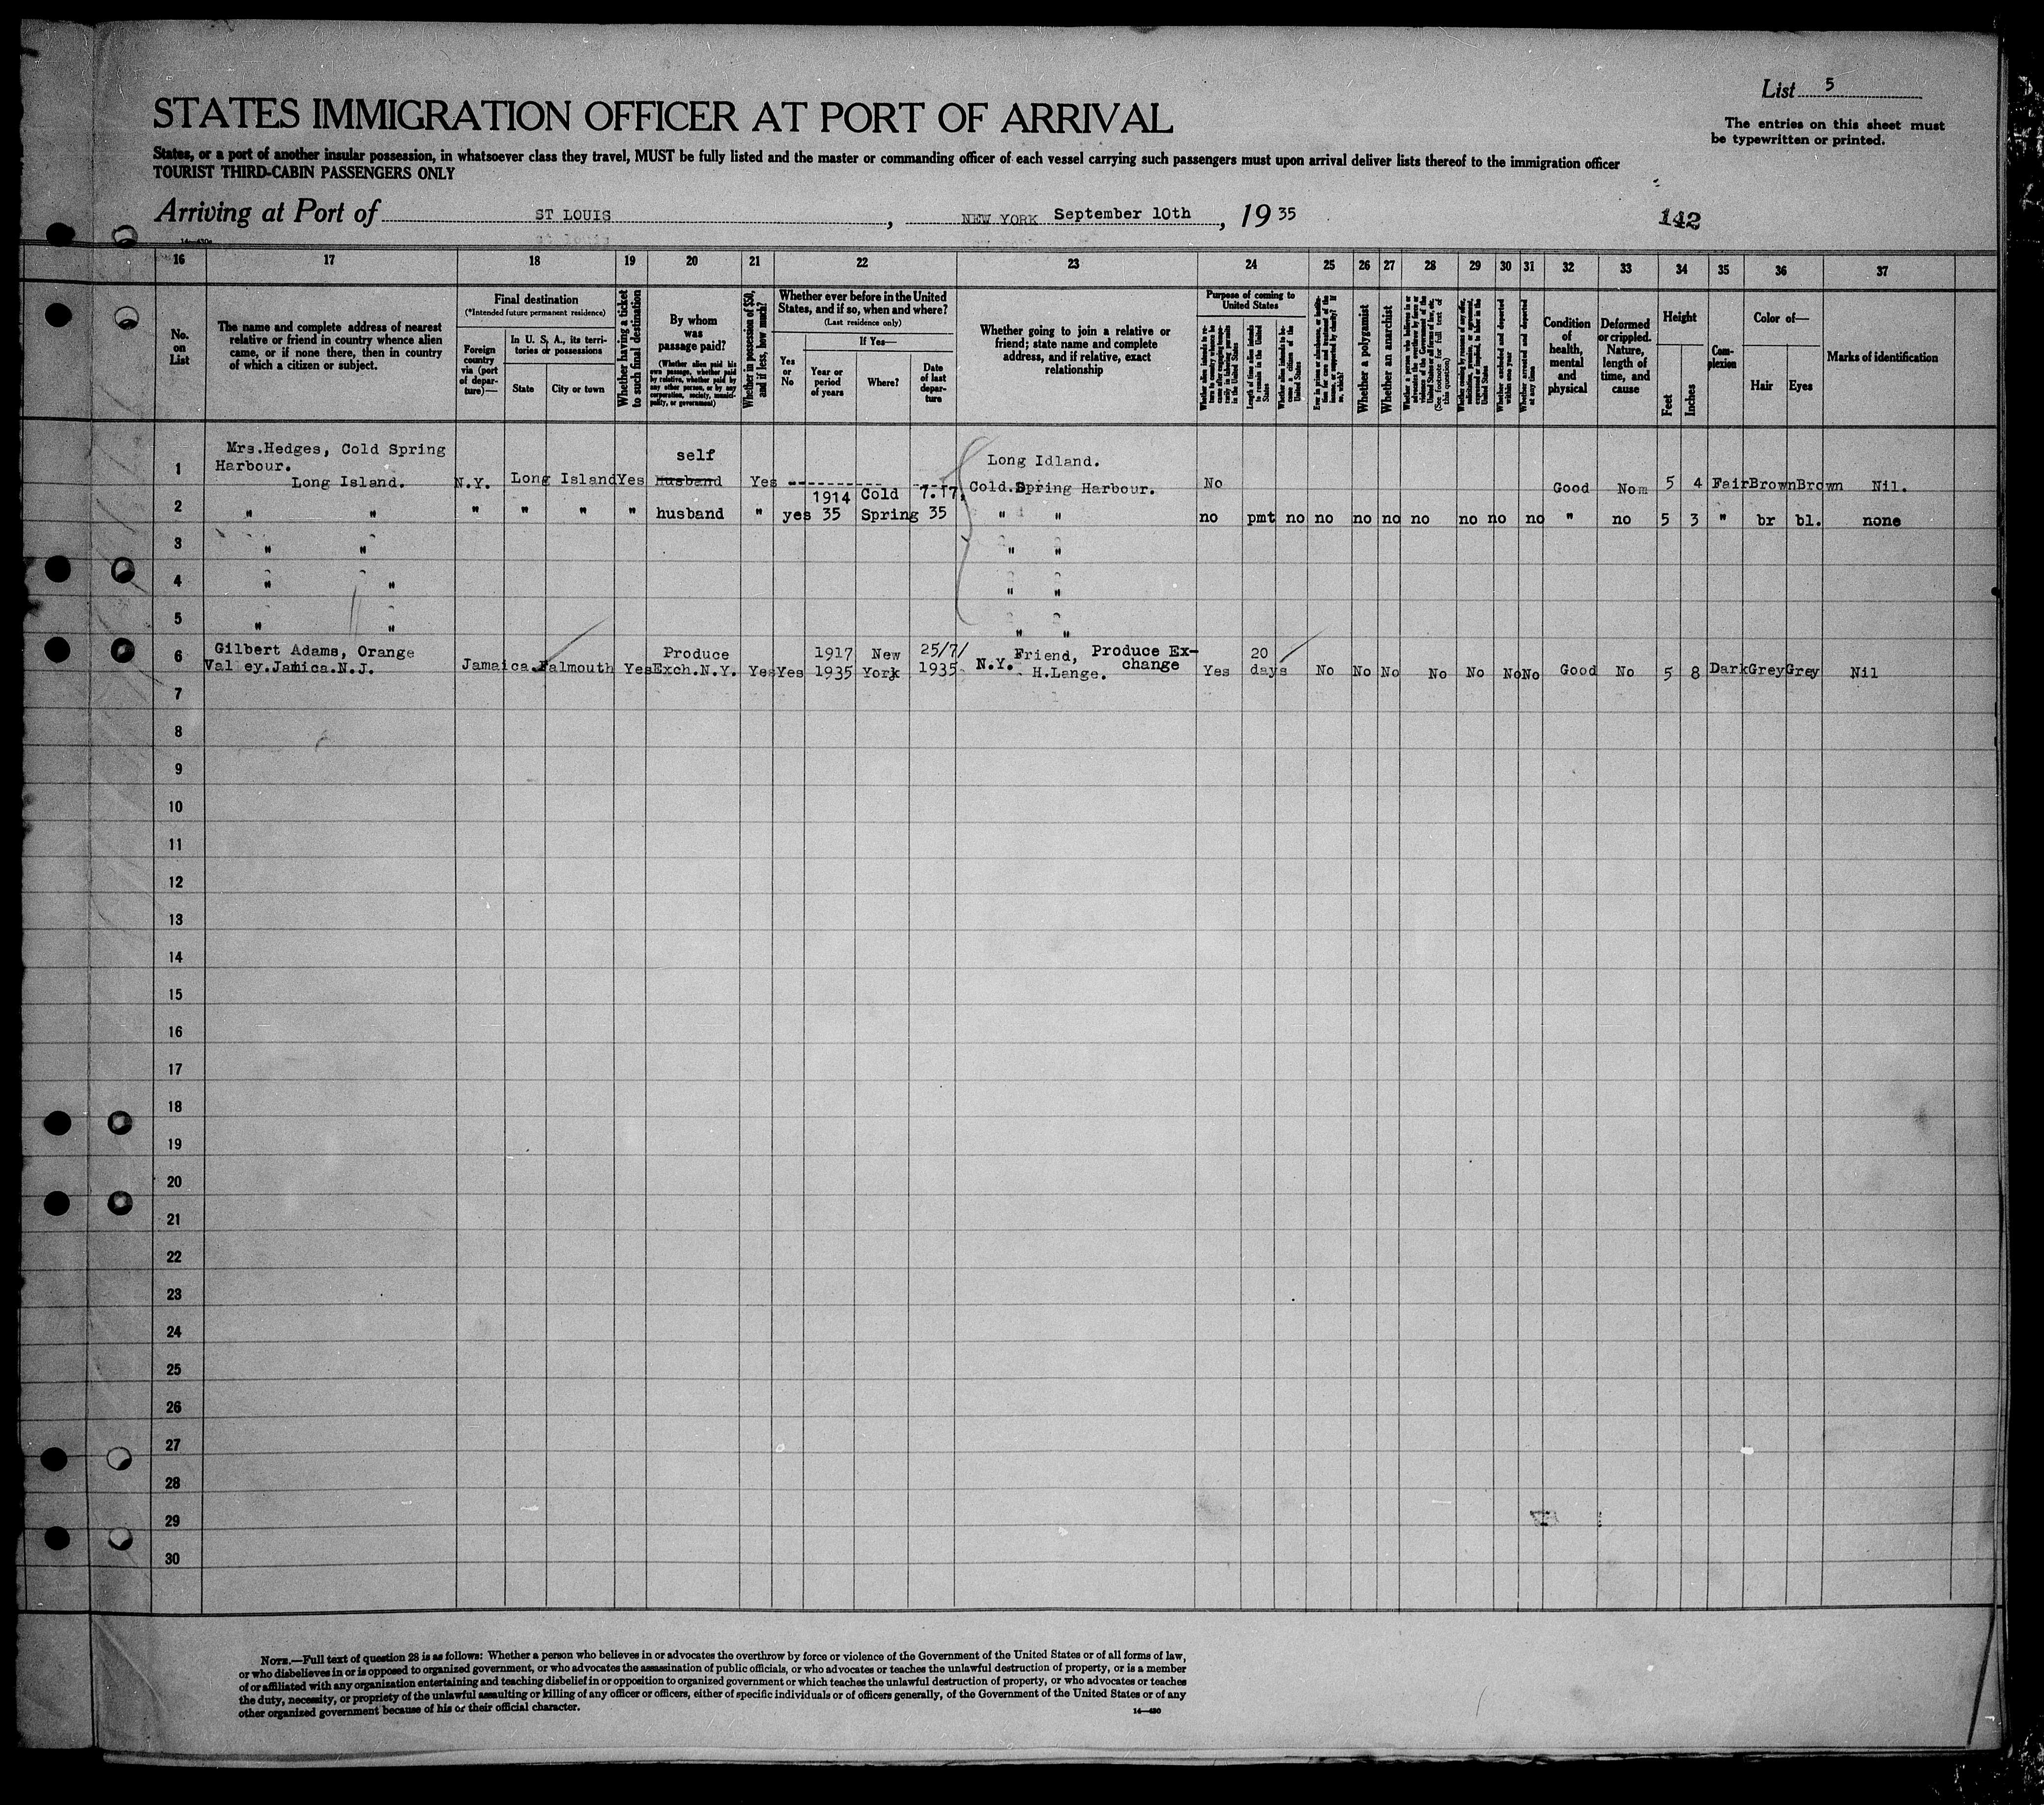 List 5
STATES IMMIGRATION OFFICER AT PORT OF ARRIVAL
The entries on this sheet must
be typewritten or printed.
States, or a port of another insular possession, in whatsoever class they travel, MUST be fully listed and the master or commanding officer of each vessel carrying such passengers must upon arrival deliver lists thereof to the immigration officer
TOURIST THIRD-CABIN PASSENGERS ONLY
Arriving at Port of ST LOUIS, NEW YORK September 10th, 1935
142
16 17 18 19 20 21 22 23 24 25 26 27 28 29 30 31 32 33 34 35 36 37
No.
on
List
The name and complete address of nearest
relative or friend in country whence alien
came, or if none there, then in country
of which a citizen or subject.
Final destination
(*Intended future permanent residence)
Foreign
country
via (port
of depar-
ture)—
In U. S. A., its terri-
tories or possessions
State
City or town
Whether having a ticket
to such final destination
By whom
was
passage paid?
(Whether alien paid his
own passage, whether paid
by relative, whether paid by
any other person, or by any
corporation, society, munici-
pality, or government)
Whether in possession of $50,
and if less, how much?
Whether ever before in the United
States, and if so, when and where?
(Last residence only)
Yes
or
No
If Yes—
Year or
period
of years
Where?
Date
of last
depar-
ture
Whether going to join a relative or
friend; state name and complete
address, and if relative, exact
relationship
Purpose of coming to
United States
Length of time alien intends
to remain in the United
States
Whether alien intends to be-
come a citizen of the
United States
Whether a polygamist
Whether an anarchist
(See footnote for full text of
this question)
Whether arrested and deported
at any time
Condition
of
health,
mental
and
physical
Deformed
or crippled.
Nature,
length of
time, and
cause
Height
Feet
Inches
Com-
plexion
Color of—
Hair
Eyes
Marks of identification
Mrs.Hedges, Cold Spring
self
1 Harbour.
Long Idland.
Long Island. N.Y. Long Island Yes Husband Yes ----------- Cold.Spring Harbour. No Good Nom 5 4 Fair Brown Brown Nil.
1914 Cold 7.17,
2 " " " " " " husband " yes 35 Spring 35 " " no pmt no no no no no no no no " no 5 3 " br bl. none
3 " " " "
4 " " " "
5 " " " "
6 Gilbert Adams, Orange Produce 1917 New 25/7/ Friend, Produce Ex- 20
Valley.Jamica.N.J. Jamaica.Falmouth Yes Exch.N.Y. Yes Yes 1935 York 1935 N.Y. H.Lange. change Yes days No No No No No No No Good No 5 8 Dark Grey Grey Nil
7
8
9
10
11
12
13
14
15
16
17
18
19
20
21
22
23
24
25
26
27
28
29
30
NOTE.—Full text of question 28 is as follows: Whether a person who believes in or advocates the overthrow by force or violence of the Government of the United States or of all forms of law,
or who disbelieves in or is opposed to organized government, or who advocates the assassination of public officials, or who advocates or teaches the unlawful destruction of property, or is a member
of or affiliated with any organization entertaining and teaching disbelief in or opposition to organized government or which teaches the unlawful destruction of property, or who advocates or teaches
the duty, necessity, or propriety of the unlawful assaulting or killing of any officer or officers, either of specific individuals or of officers generally, of the Government of the United States or of any
other organized government because of his or their official character.
14—430